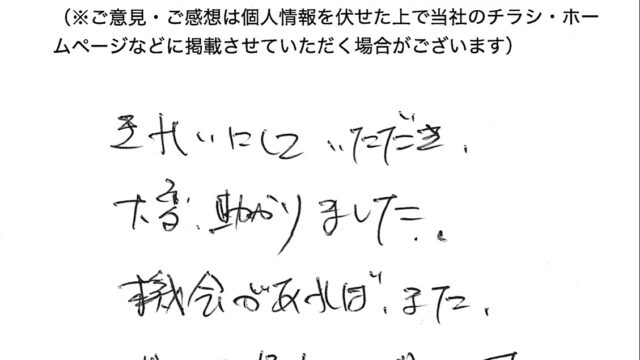 （※ご意見・ご感想は個人情報を伏せた上で当社のチラシ・ホー
ムページなどに掲載させていただく場合がございます）
きれいにして いただき、
大変、助かりました。
機会があれば、また、